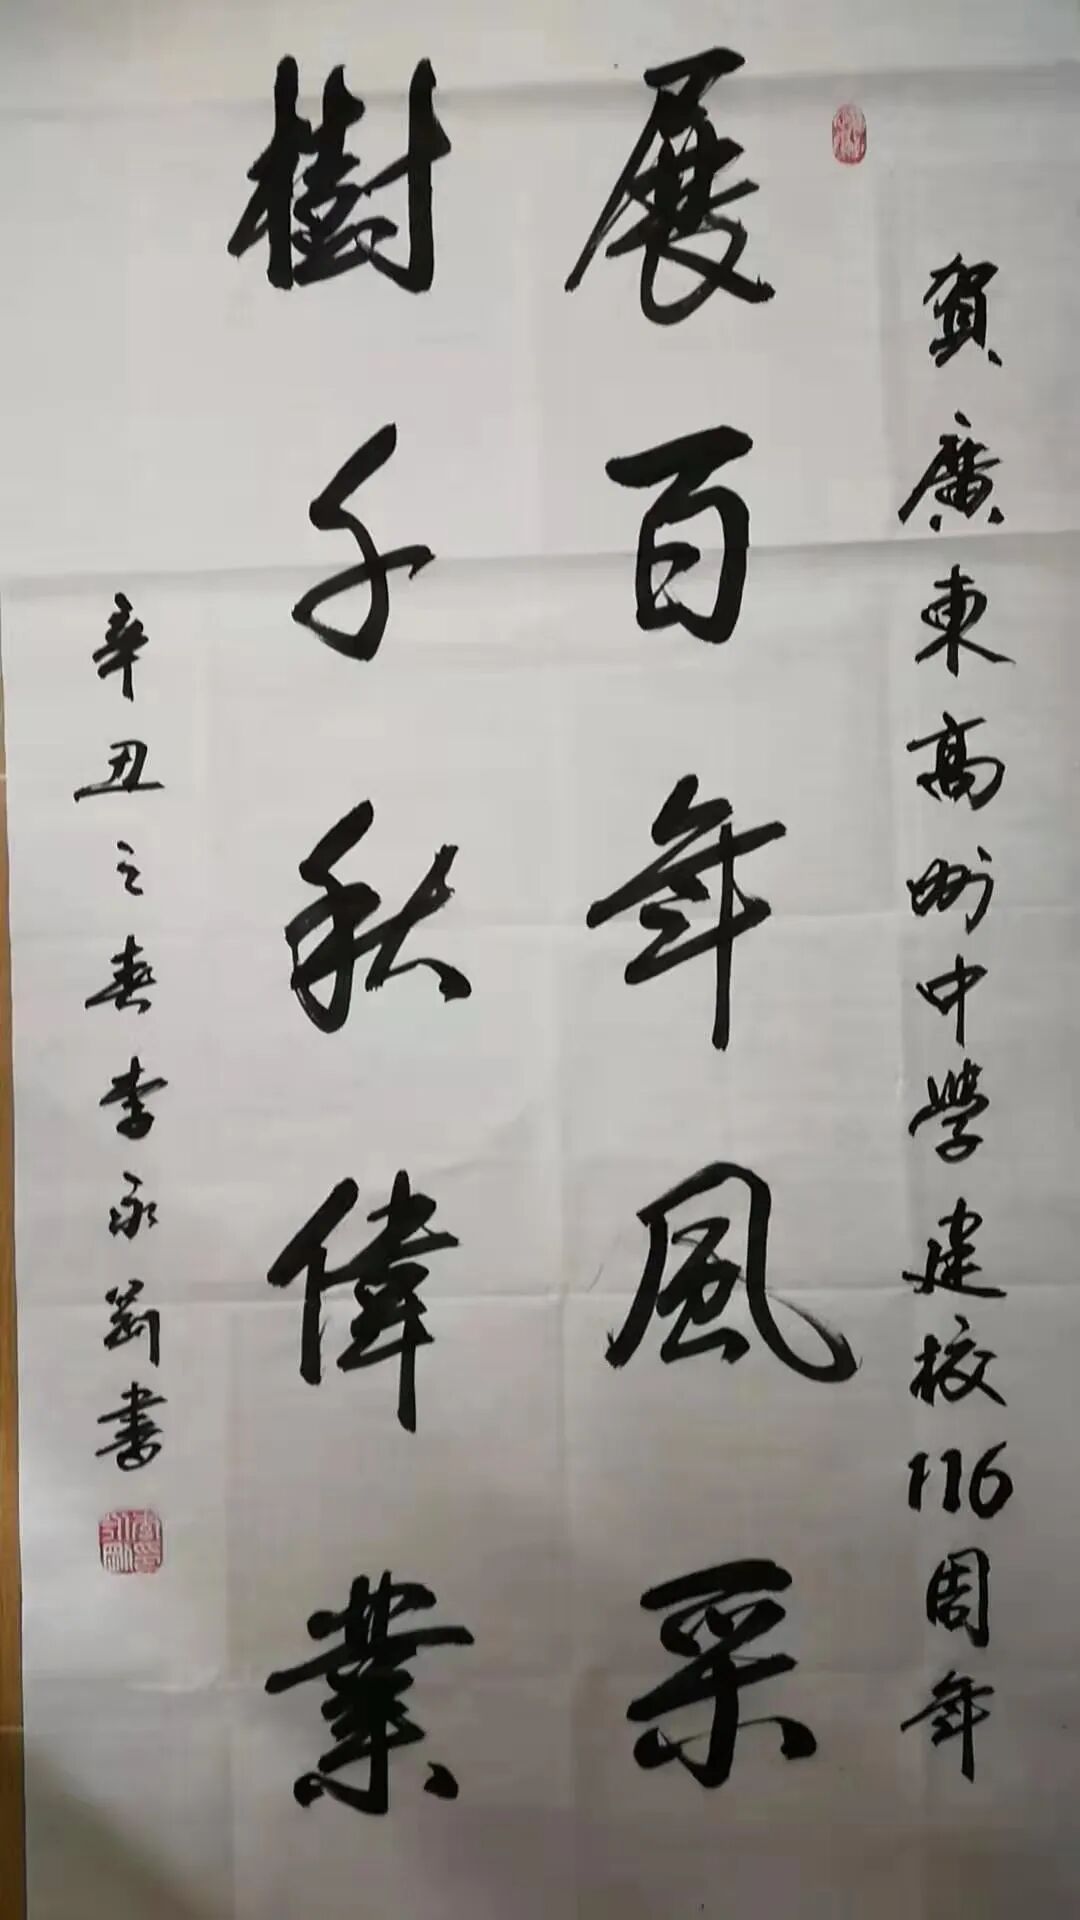 賀廣東高州中學建校116周年
展百年風采
樹千秋偉業
辛丑之春李永剛書